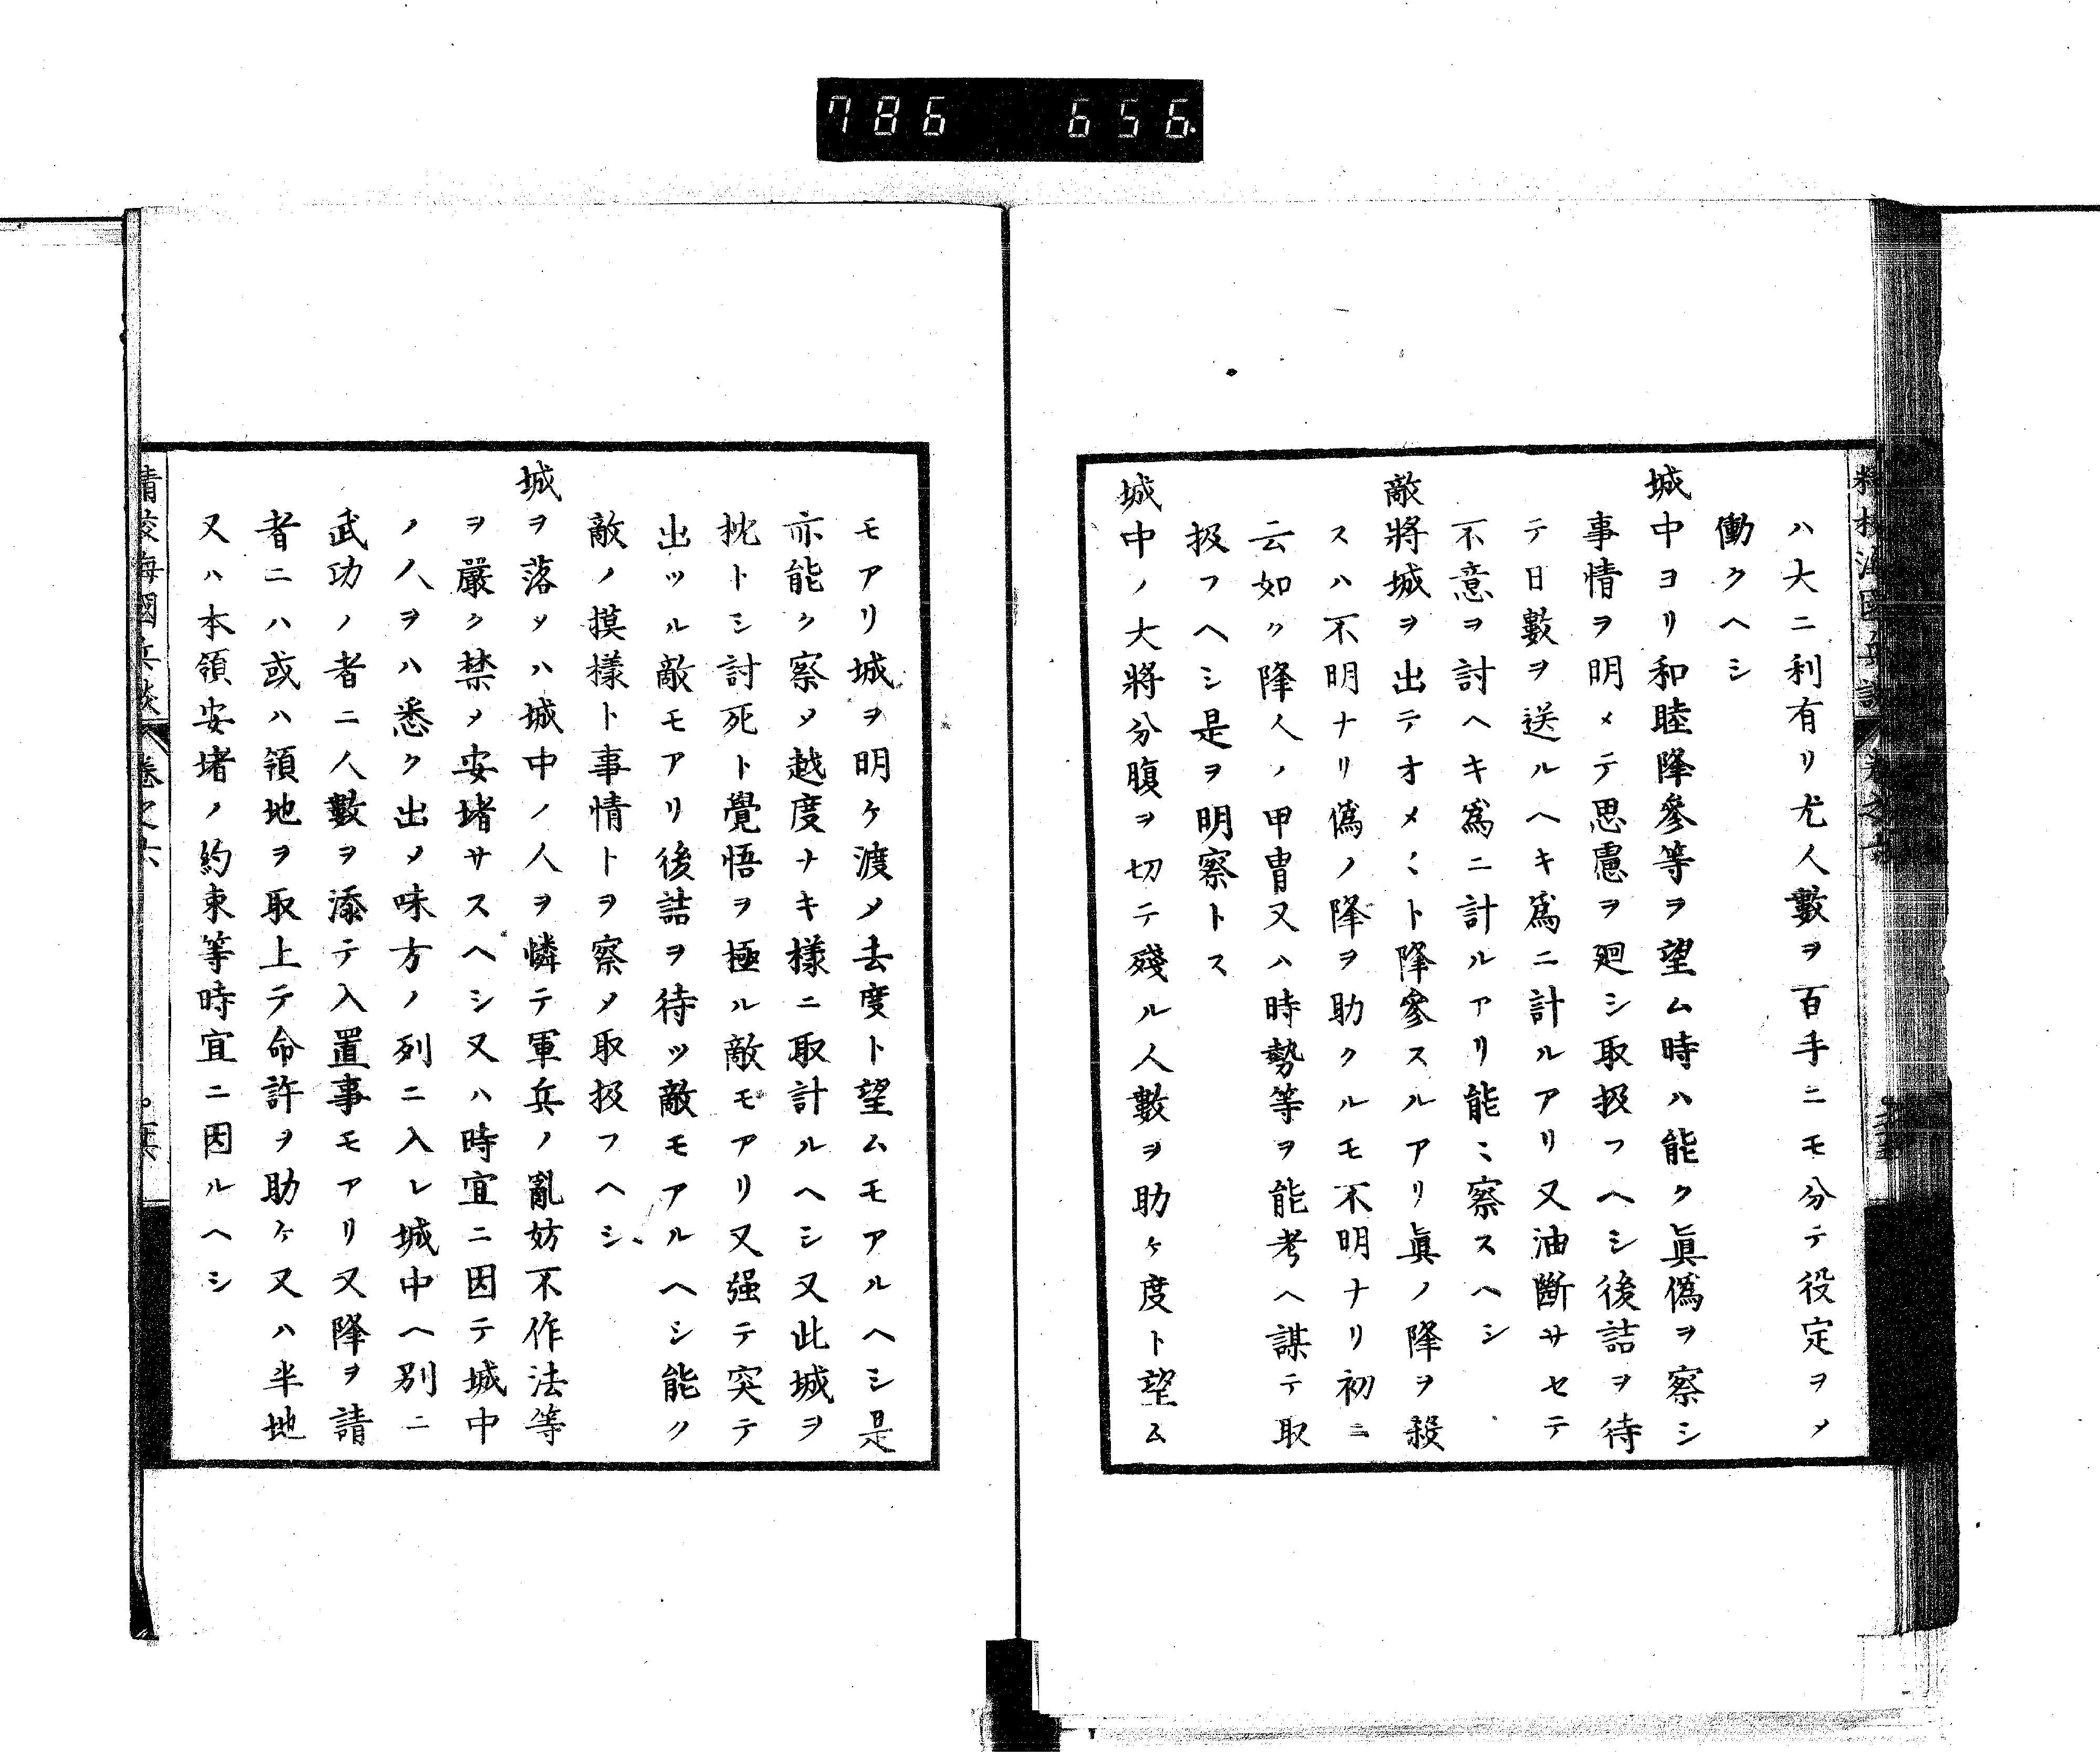 786 656
ハ大ニ利有リ尤人數ヲ百手ニモ分テ役定ヲメ
働クヘシ
城中ヨリ和睦降參等ヲ望ム時ハ能ク眞僞ヲ察シ
事情ヲ明メテ思慮ヲ廻シ取扱フヘシ後詰ヲ待
テ日數ヲ送ルヘキ爲ニ計ルアリ又油斷サセテ
不意ヲ討ヘキ爲ニ計ルアリ能ミ察スヘシ
敵將城ヲ出テオメミト降參スルアリ眞ノ降ヲ殺
スハ不明ナリ僞ノ降ヲ助クルモ不明ナリ初ニ
云如ク降人ノ甲冑又ハ時勢等ヲ能考ヘ謀テ取
扱フヘシ是ヲ明察トス
城中ノ大將分腹ヲ切テ殘ル人數ヲ助ケ度ト望ム
モアリ城ヲ明ケ渡メ去度ト望ムモアルヘシ是
亦能ク察メ越度ナキ樣ニ取計ルヘシ又此城ヲ
枕トシ討死ト覺悟ヲ極ル敵モアリ又强テ突テ
出ツル敵モアリ後詰ヲ待ツ敵モアルヘシ能ク
敵ノ摸樣ト事情トヲ察メ取扱フヘシ
城ヲ落メハ城中ノ人ヲ憐テ軍兵ノ亂妨不作法等
ヲ嚴ク禁メ安堵サスヘシ又ハ時宜ニ因テ城中
ノ人ヲハ悉ク出メ味方ノ列ニ入レ城中ヘ別ニ
武功ノ者ニ人數ヲ添テ入置事モアリ又降ヲ請
者ニハ或ハ領地ヲ取上テ命許ヲ助ケ又ハ半地
又ハ本領安堵ノ約束等時宜ニ因ルヘシ
精校海國兵談 卷之六